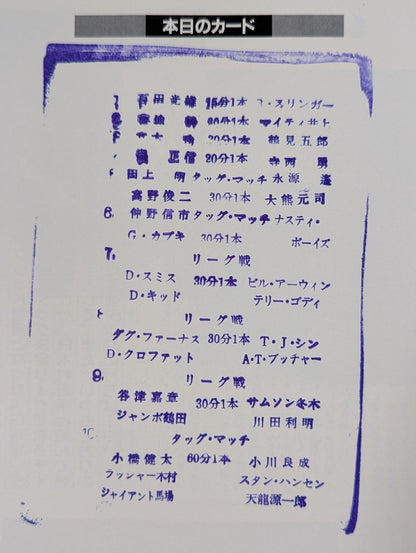 本日のカード
1 百田光雄 15分1本 R・スリンガー
30分1本 マイティ井上
20分1本 鶴見五郎
正信 20分1本 寺西 勇
田上 明 タッグ・マッチ 永源 遙
高野俊二 30分1本 大熊元司
6. 仲野信市 タッグ・マッチ ナスティ・
G・カブキ 30分1本 ボーイズ
7. リーグ戦
D・スミス 30分1本 ビル・アーウィン
D・キッド テリー・ゴディ
8 リーグ戦
ダグ・ファーナス 30分1本 T・J・シン
D・クロファット A・T・ブッチャー
9. リーグ戦
谷津嘉章 30分1本 サムソン冬木
ジャンボ鶴田 川田利明
10. タッグ・マッチ
小橋健太 60分1本 小川良成
ラッシャー木村 スタン・ハンセン
ジャイアント馬場 天龍源一郎